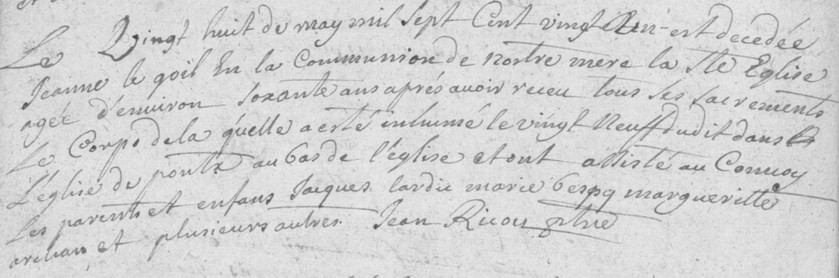 Le Vingt huit de may mil sept Cent vingt Un est decedée
Jeanne le goil En la Communion de nostre mere la Ste Eglise
agée d'environ soxante ans aprés avoir receu tous ses sacrements
Le Corps de la quelle a esté inhumé le vingt Neuff dudit dans
L'église de pontx au bas de l'église et ont assisté au Convoy
Les parents et enfans Jacques marie margueritte
et plusieurs autres Jean Ricou ptre